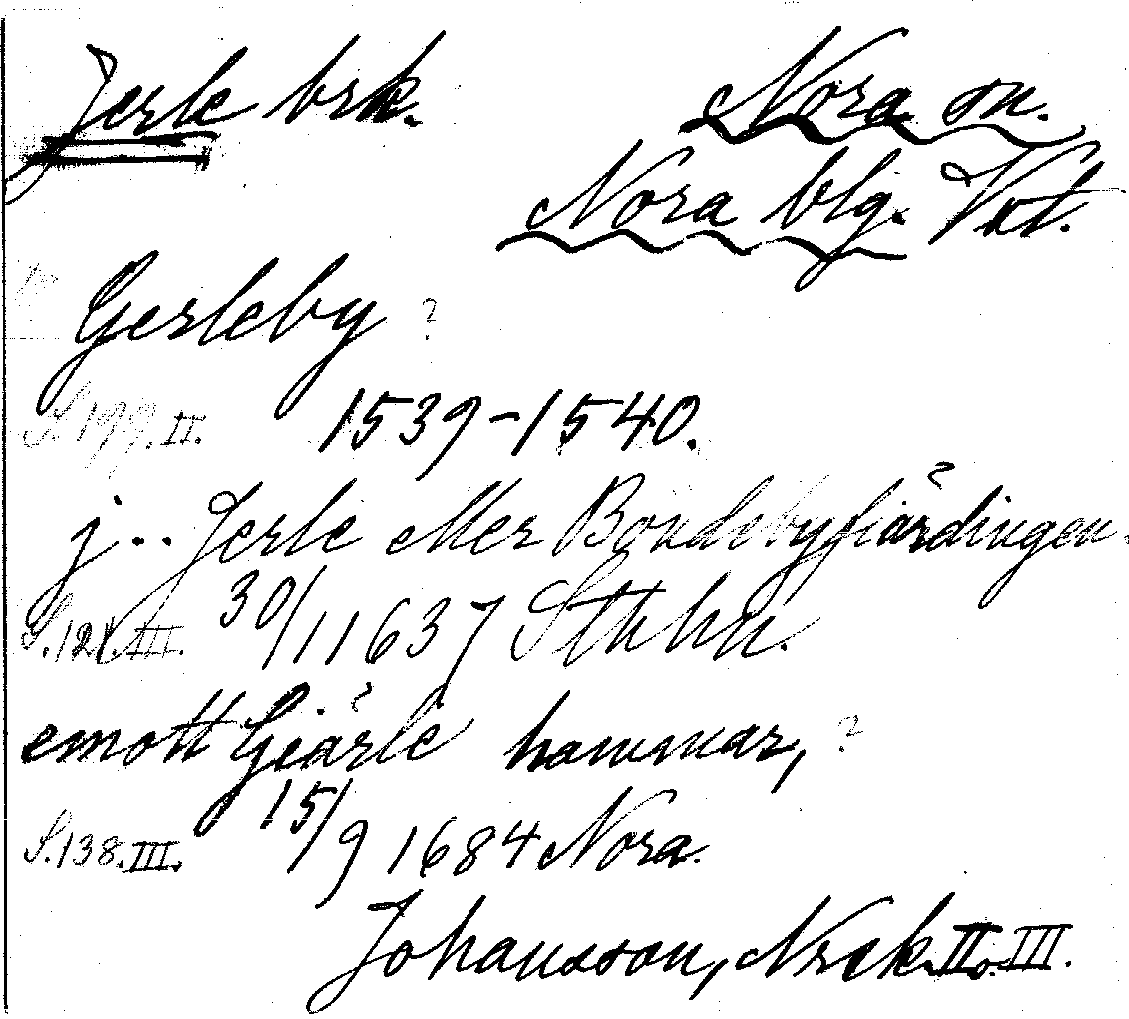 Jerle brk. Nora sn.
Nora blg. Vstm.
Gerleby ?
S. 199. II. 1539-1540.
j.. Jerle eller Bondebyfiärdingen.
S. 121. III. 30/11 1637 Sthlm.
emott Giärle hammar, ?
S. 138. III. 15/9 1684 Nora.
Johansson, Nrsk. II. III.